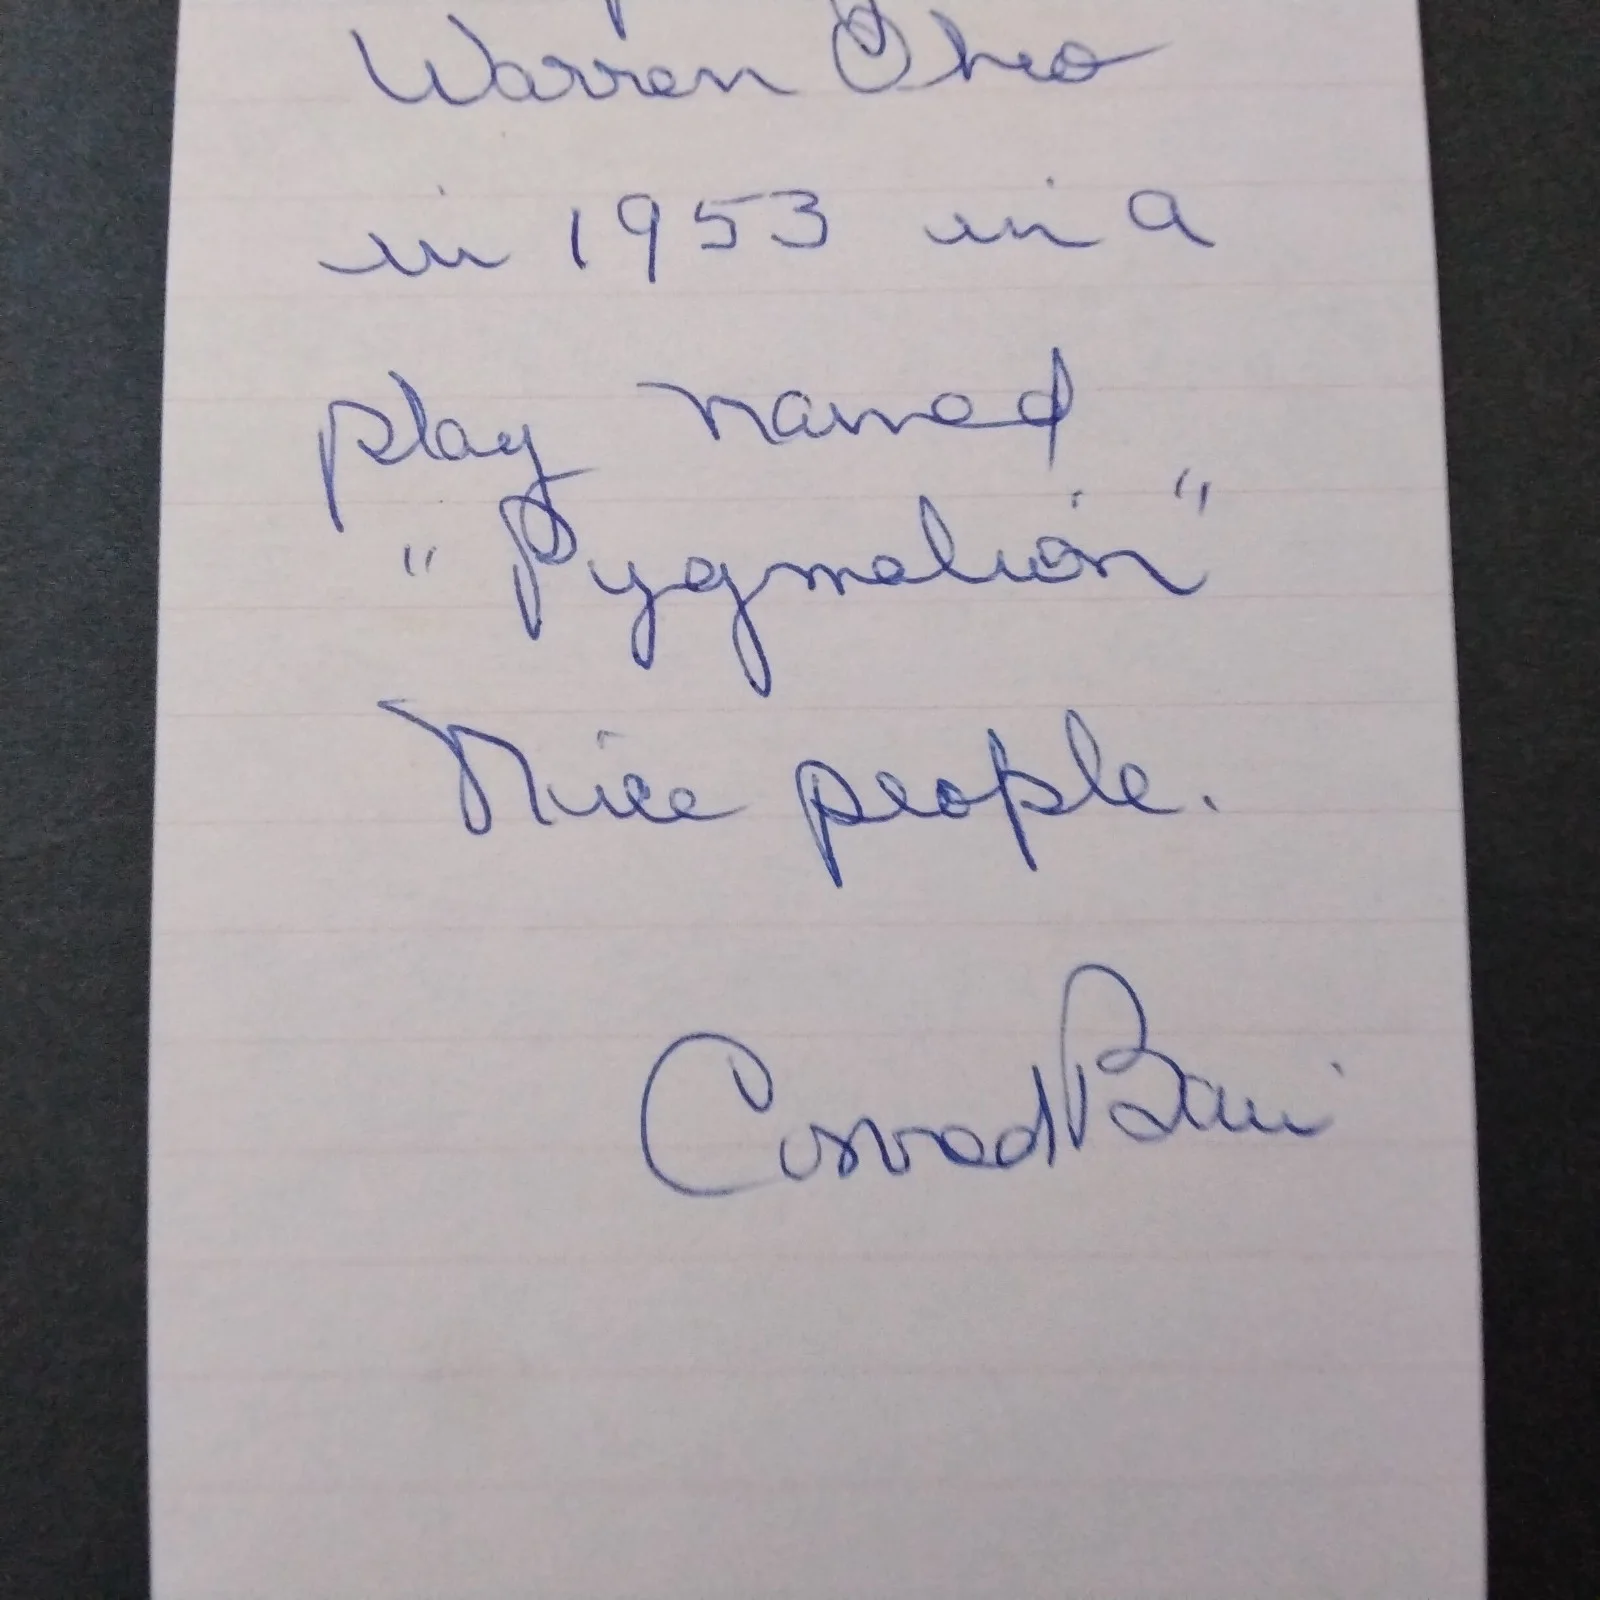 Warren Ohio
in 1953 in a
play named
"Pygmalion"
Nice people.
Conrad Bain